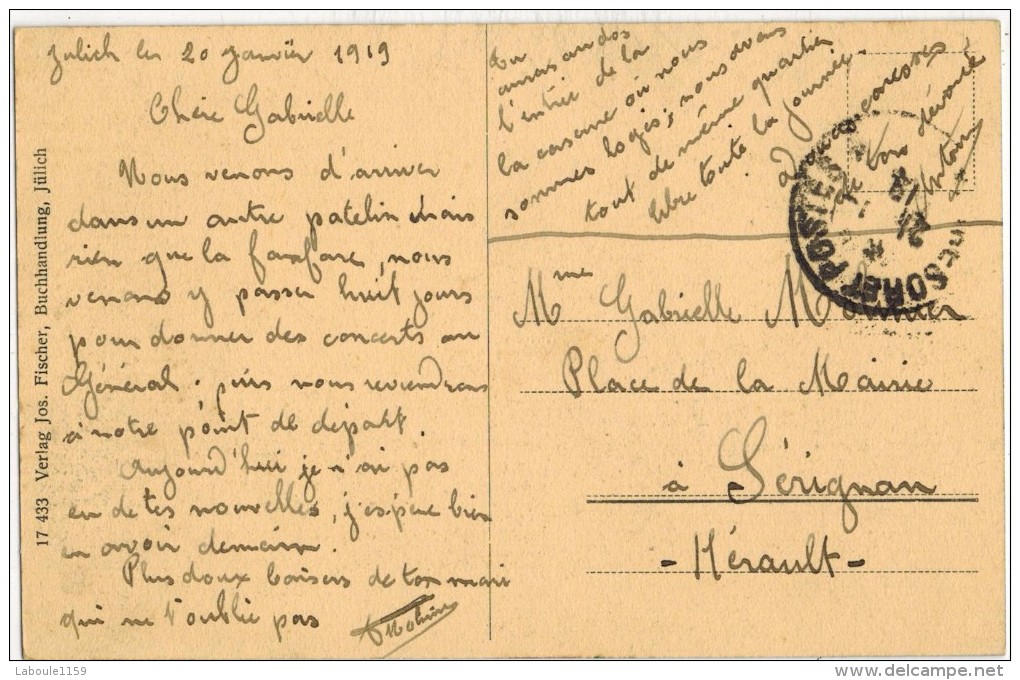 Julich les 20 Janvier 1919
Chère Gabrielle
Nous venons d'arriver
dans un autre patelin mais
rien que la fanfare, nous
venons y passer huit jours
pour donner des concerts au
Général. puis nous reviendrons
à notre point de départ.
Aujourd'hui je n'ai pas
eu de tes nouvelles, j'espère bien
en avoir demain.
Plus doux baisers de ton mari
qui ne t'oublie pas
Tu
auras au dos
l'entrée de la
caserne où nous
sommes logés, nous avons
tout de même quartier
libre toute la journée.
caresses
Ton dévoué
Mme Gabrielle
Place de la Mairie
à Sérignan
- Hérault -
TRESOR ET POSTES
21
17 433 Verlag Jos. Fischer, Buchhandlung, Jülich
Laboule1159
www.delcampe.net